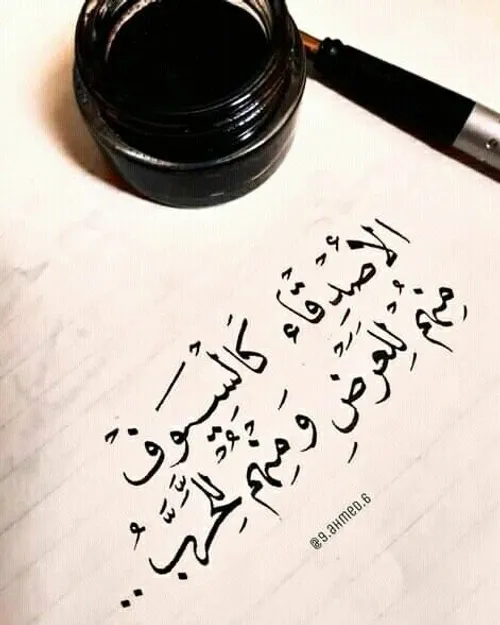 الأَصْدِقَاء كَالسِّيوفْ
مِنْهُمْ لِلعَرْضِ وَمِنْهُمْ لِلْحَرْبُ..
@9.AHMED.6